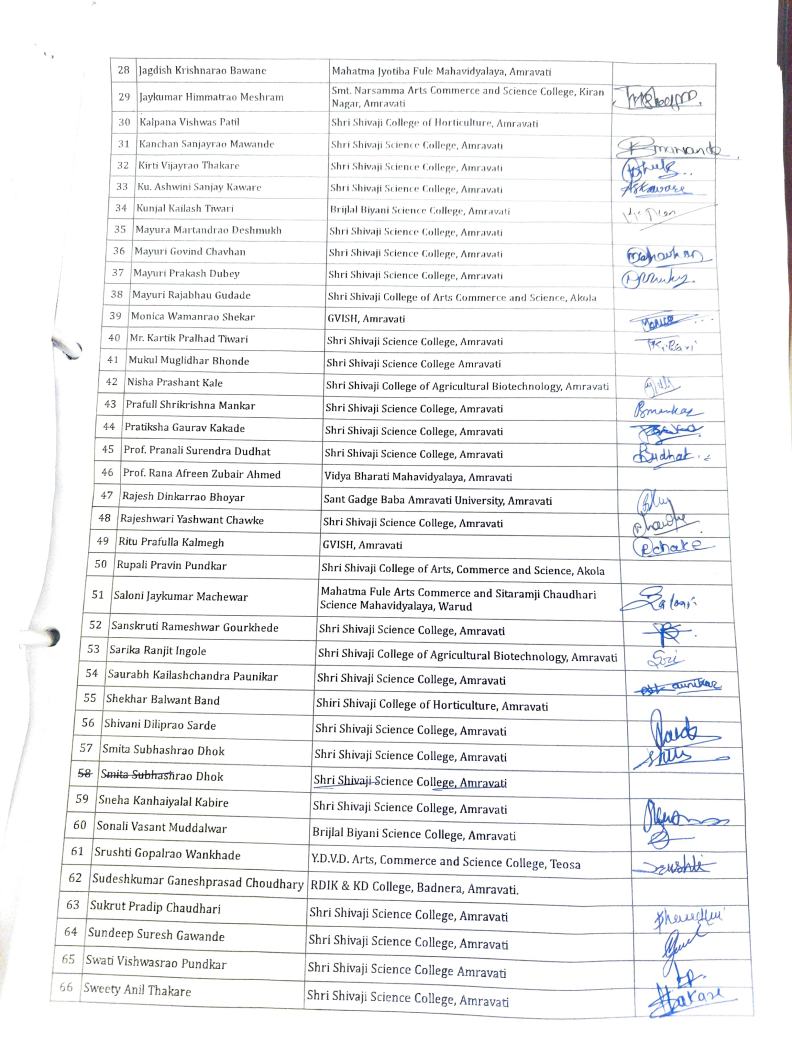 28 Jagdish Krishnarao Bawane Mahatma Jyotiba Fule Mahavidyalaya, Amravati
29 Jaykumar Himmatrao Meshram Smt. Narsamma Arts Commerce and Science College, Kiran
Nagar, Amravati
30 Kalpana Vishwas Patil Shri Shivaji College of Horticulture, Amravati
31 Kanchan Sanjayrao Mawande Shri Shivaji Science College, Amravati
32 Kirti Vijayrao Thakare Shri Shivaji Science College, Amravati
33 Ku. Ashwini Sanjay Kaware Shri Shivaji Science College, Amravati
34 Kunjal Kailash Tiwari Brijlal Biyani Science College, Amravati
35 Mayura Martandrao Deshmukh Shri Shivaji Science College, Amravati
36 Mayuri Govind Chavhan Shri Shivaji Science College, Amravati
37 Mayuri Prakash Dubey Shri Shivaji Science College, Amravati
38 Mayuri Rajabhau Gudade Shri Shivaji College of Arts Commerce and Science, Akola
39 Monica Wamanrao Shekar GVISH, Amravati
40 Mr. Kartik Pralhad Tiwari Shri Shivaji Science College, Amravati
41 Mukul Muglidhar Bhonde Shri Shivaji Science College Amravati
42 Nisha Prashant Kale Shri Shivaji College of Agricultural Biotechnology, Amravati
43 Prafull Shrikrishna Mankar Shri Shivaji Science College, Amravati
44 Pratiksha Gaurav Kakade Shri Shivaji Science College, Amravati
45 Prof. Pranali Surendra Dudhat Shri Shivaji Science College, Amravati
46 Prof. Rana Afreen Zubair Ahmed Vidya Bharati Mahavidyalaya, Amravati
47 Rajesh Dinkarrao Bhoyar Sant Gadge Baba Amravati University, Amravati
48 Rajeshwari Yashwant Chawke Shri Shivaji Science College, Amravati
49 Ritu Prafulla Kalmegh GVISH, Amravati
50 Rupali Pravin Pundkar Shri Shivaji College of Arts, Commerce and Science, Akola
51 Saloni Jaykumar Machewar Mahatma Fule Arts Commerce and Sitaramji Chaudhari
Science Mahavidyalaya, Warud
52 Sanskruti Rameshwar Gourkhede Shri Shivaji Science College, Amravati
53 Sarika Ranjit Ingole Shri Shivaji College of Agricultural Biotechnology, Amravati
54 Saurabh Kailashchandra Paunikar Shri Shivaji Science College, Amravati
55 Shekhar Balwant Band Shiri Shivaji College of Horticulture, Amravati
56 Shivani Diliprao Sarde Shri Shivaji Science College, Amravati
57 Smita Subhashrao Dhok Shri Shivaji Science College, Amravati
58 Smita Subhashrao Dhok Shri Shivaji Science College, Amravati
59 Sneha Kanhaiyalal Kabire Shri Shivaji Science College, Amravati
60 Sonali Vasant Muddalwar Brijlal Biyani Science College, Amravati
61 Srushti Gopalrao Wankhade Y.D.V.D. Arts, Commerce and Science College, Teosa
62 Sudeshkumar Ganeshprasad Choudhary RDIK & KD College, Badnera, Amravati.
63 Sukrut Pradip Chaudhari Shri Shivaji Science College, Amravati
64 Sundeep Suresh Gawande Shri Shivaji Science College, Amravati
65 Swati Vishwasrao Pundkar Shri Shivaji Science College Amravati
66 Sweety Anil Thakare Shri Shivaji Science College, Amravati